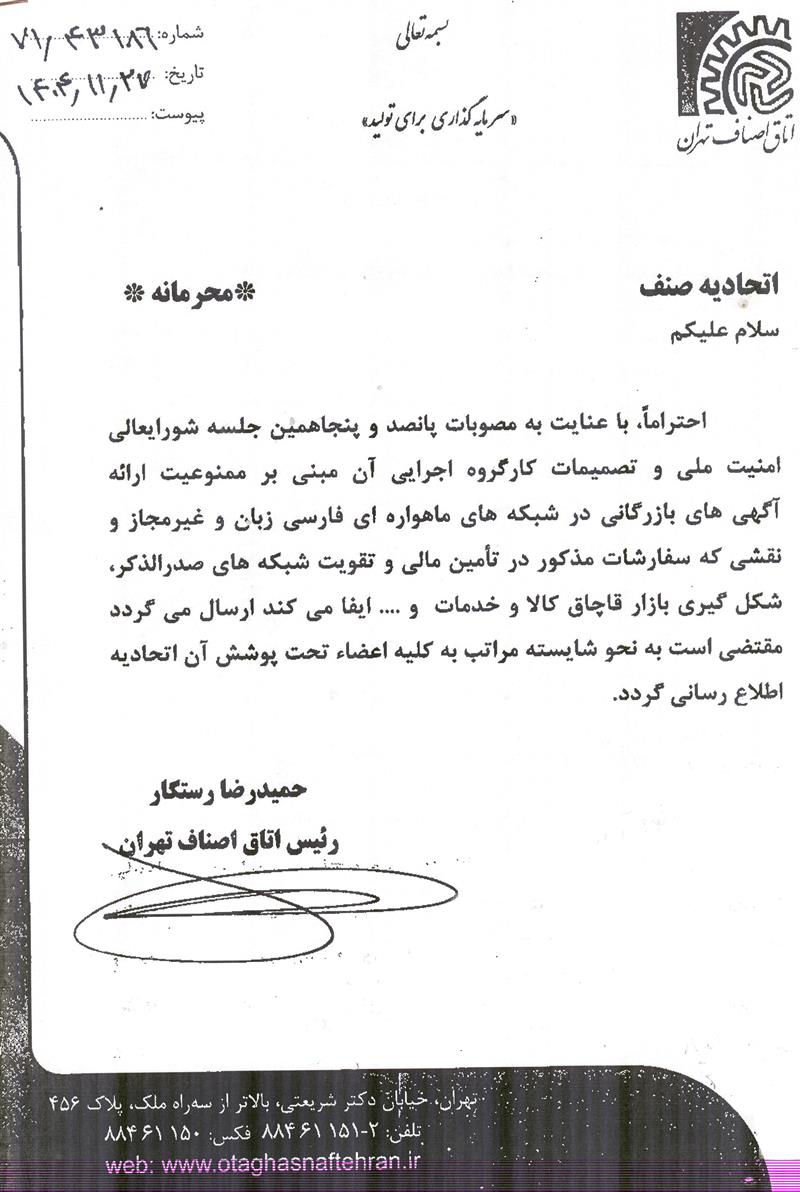 بسمه تعالی
شماره: ۷۱/۴۳۱۸۶
تاریخ: ۱۴۰۴/۱۱/۲۷
پیوست:
«سرمایه گذاری برای تولید»
اتاق اصناف تهران
اتحادیه صنف
*محرمانه *
سلام علیکم
احتراماً، با عنایت به مصوبات پانصد و پنجاهمین جلسه شورایعالی
امنیت ملی و تصمیمات کارگروه اجرایی آن مبنی بر ممنوعیت ارائه
آگهی های بازرگانی در شبکه های ماهواره ای فارسی زبان و غیرمجاز و
نقشی که سفارشات مذکور در تأمین مالی و تقویت شبکه های صدرالذکر،
شکل گیری بازار قاچاق کالا و خدمات و .... ایفا می کند ارسال می گردد
مقتضی است به نحو شایسته مراتب به کلیه اعضاء تحت پوشش آن اتحادیه
اطلاع رسانی گردد.
حمیدرضا رستگار
رئیس اتاق اصناف تهران
تهران، خیابان دکتر شریعتی، بالاتر از سه‌راه ملک، پلاک ۴۵۶
تلفن: ۲-۸۸۴۶۱۱۵۱ فکس: ۸۸۴۶۱۱۵۰
web: www.otaghasnaftehran.ir